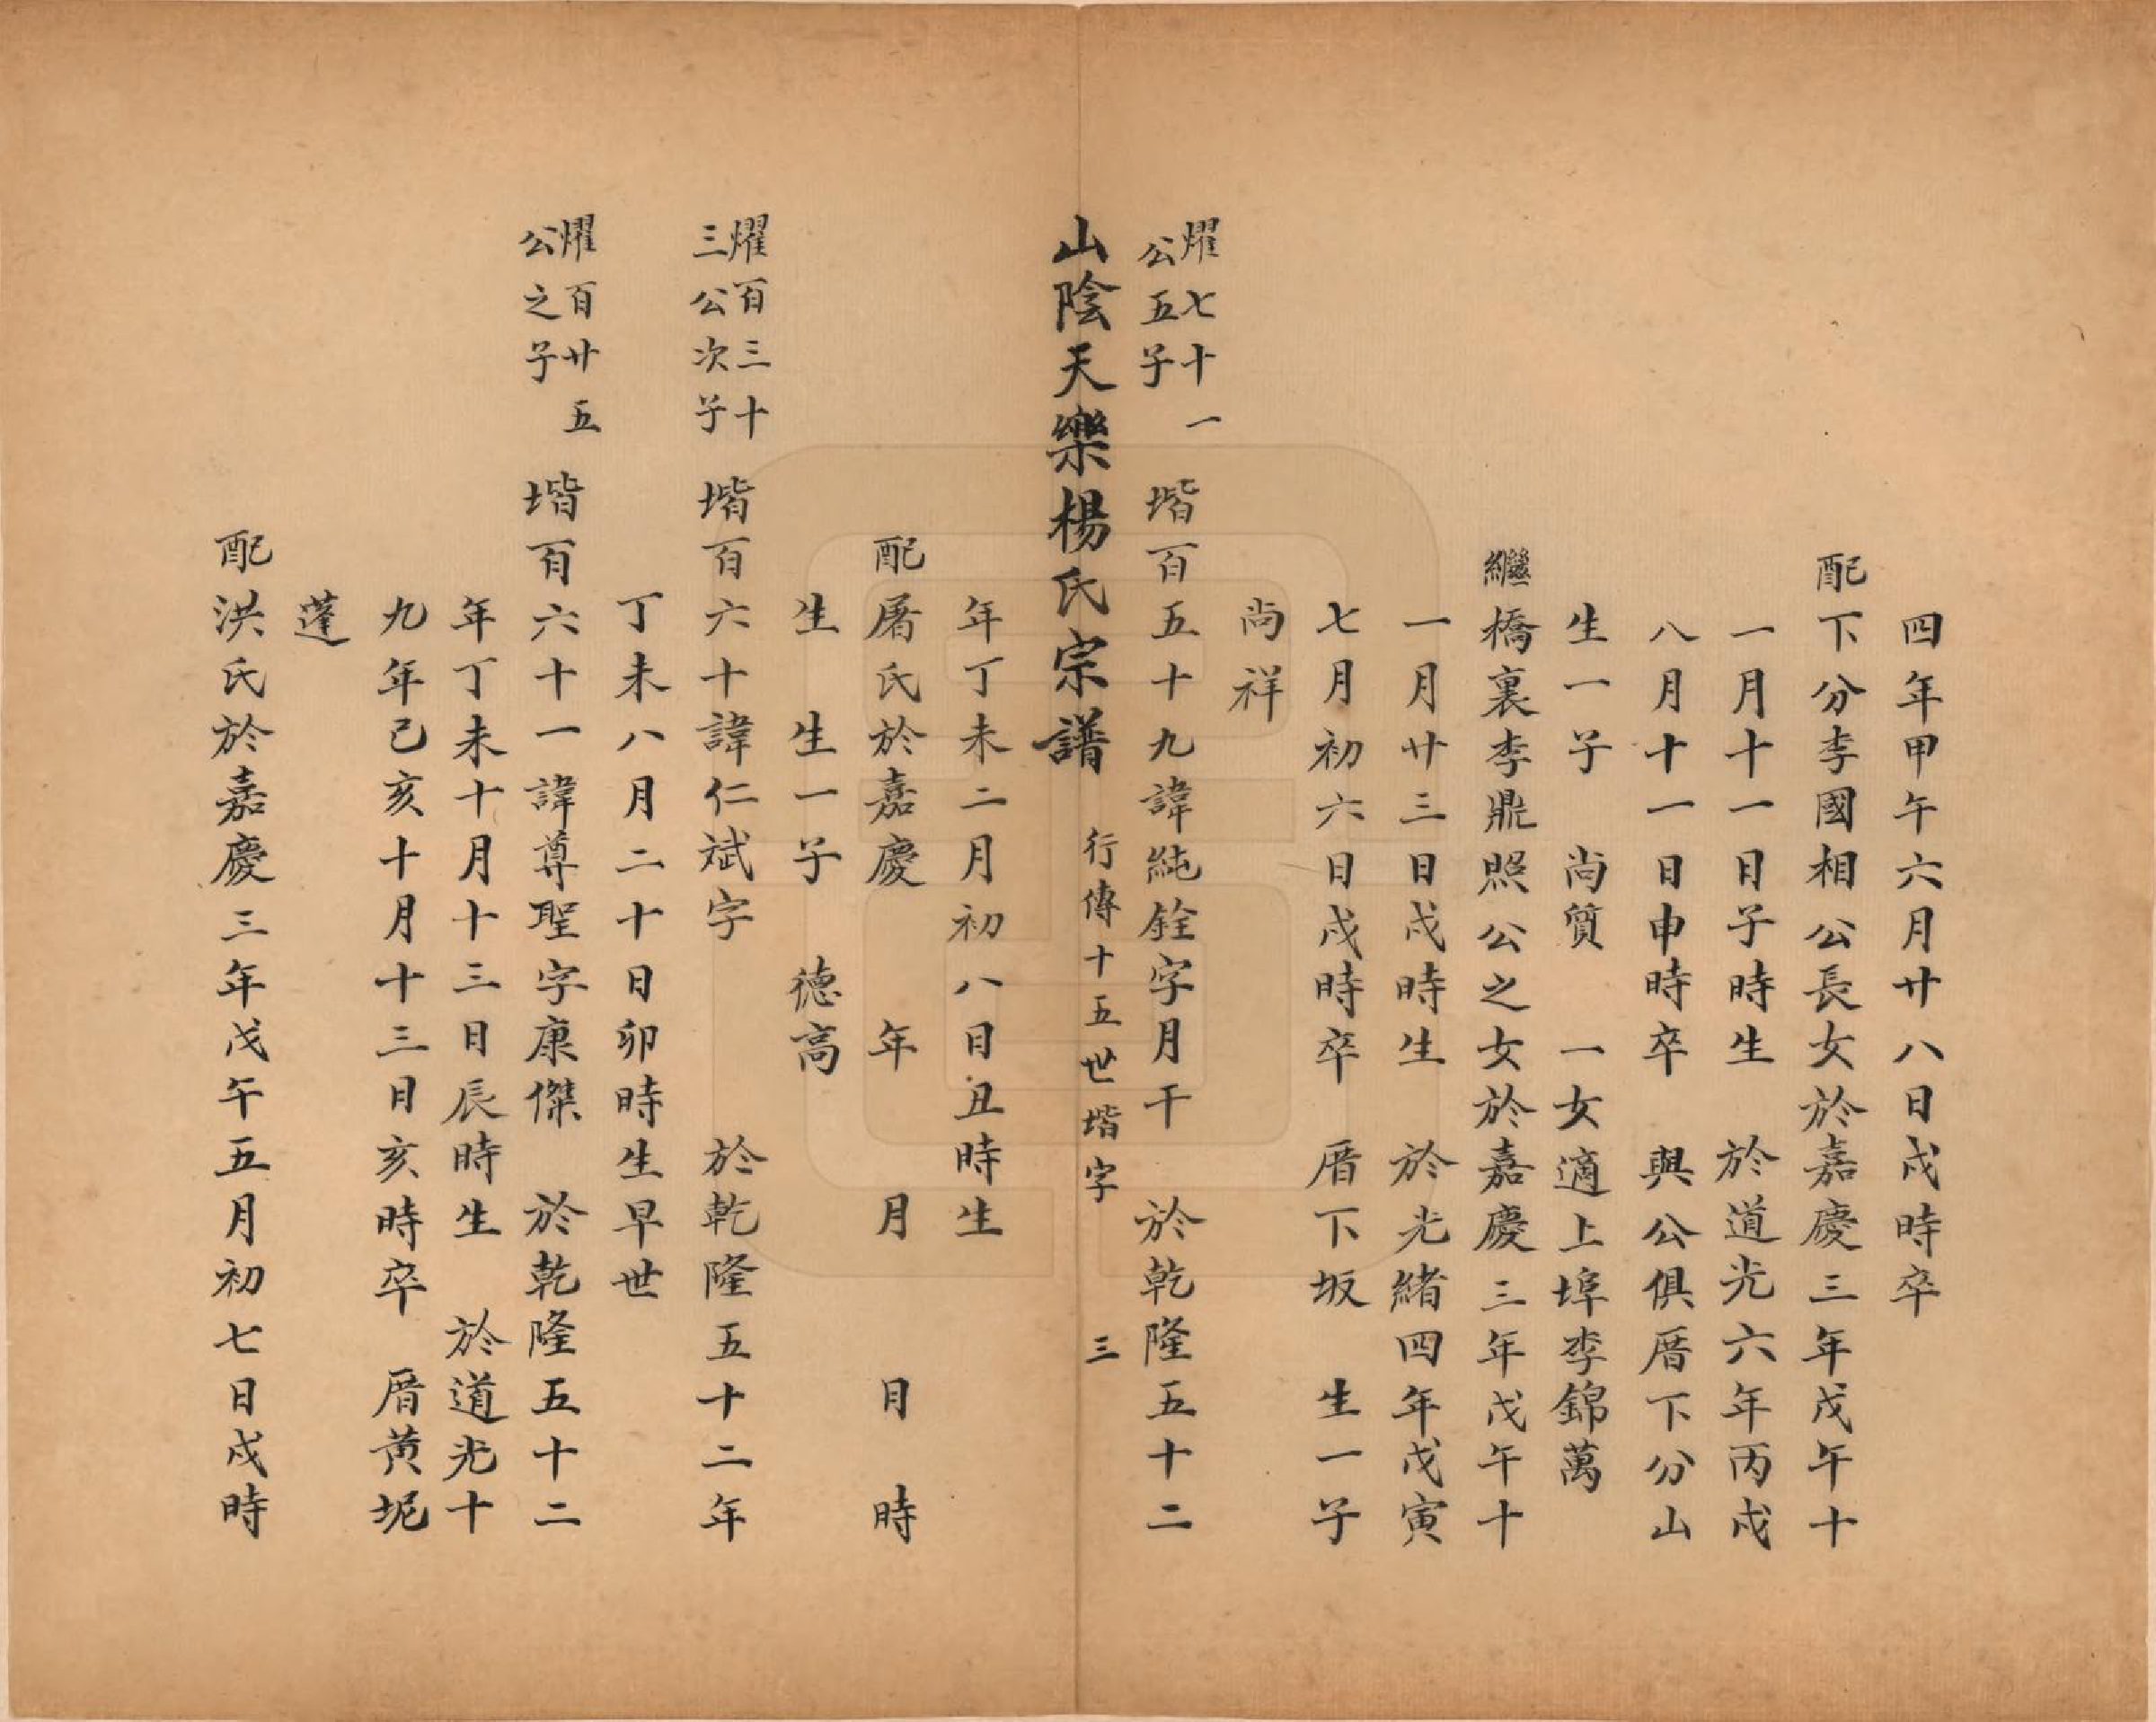 四年甲午六月廿八日戌時卒
配下分李國相公長女於嘉慶三年戊午十
一月十一日子時生　於道光六年丙戌
八月十一日申時卒　與公俱厝下分山
生一子　尚質　一女適上埠李錦萬
繼橋裏李鼎照公之女於嘉慶三年戊午十
一月廿三日戌時生　於光緒四年戊寅
七月初六日戌時卒　厝下坂　生一子
尚祥
燿七十一
公五子
堦百五十九諱純銓字月干　於乾隆五十二
山陰天樂楊氏宗譜　行傳十五世堦字　三
年丁未二月初八日丑時生
配屠氏於嘉慶　年　月　日　時
生　生一子　德高
燿百三十
三公次子
堦百六十諱仁斌字　於乾隆五十二年
丁未八月二十日卯時生早世
燿百廿五
公之子
堦百六十一諱尊聖字康傑　於乾隆五十二
年丁未十月十三日辰時生　於道光十
九年己亥十月十三日亥時卒　厝黃坭
蓬
配洪氏於嘉慶三年戊午五月初七日戌時